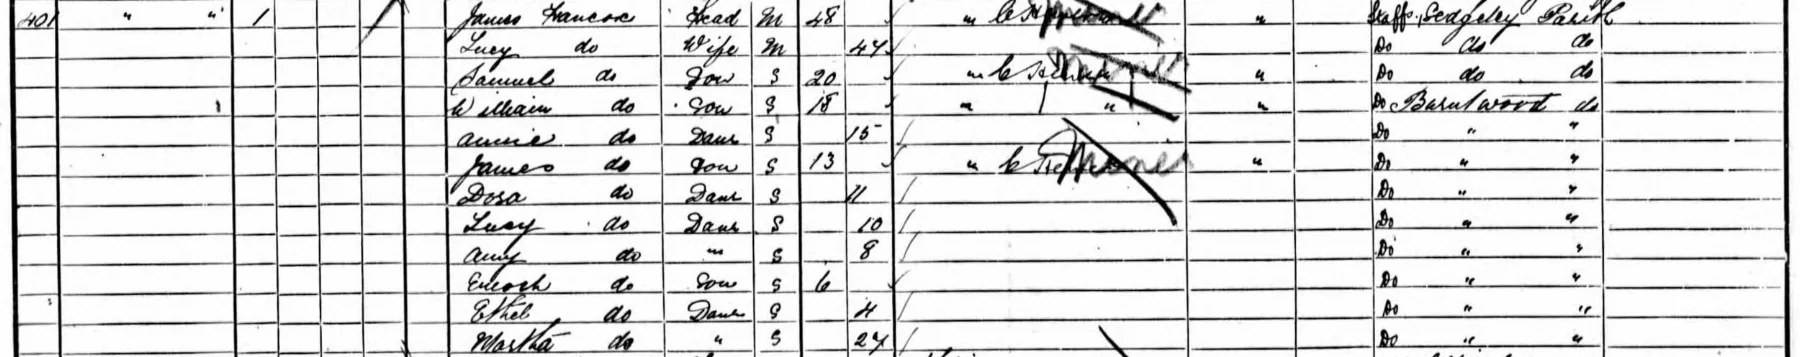 401 " " 1 James Hancox Head M 48 " " Staffs, Sedgeley Parish
Lucy do Wife M 47 Do do do
Samuel do Son S 20 " " Do do do
William do Son S 18 " " " Do Burntwood do
Annie do Daur S 15 Do " "
James do Son S 13 " Miner " Do " "
Dora do Daur S 11 Do " "
Lucy do Daur S 10 Do " "
Amy do " S 8 Do " "
Enoch do Son S 6 Do " "
Ethel do Daur S 4 Do " "
Martha do " S 27 Do " "